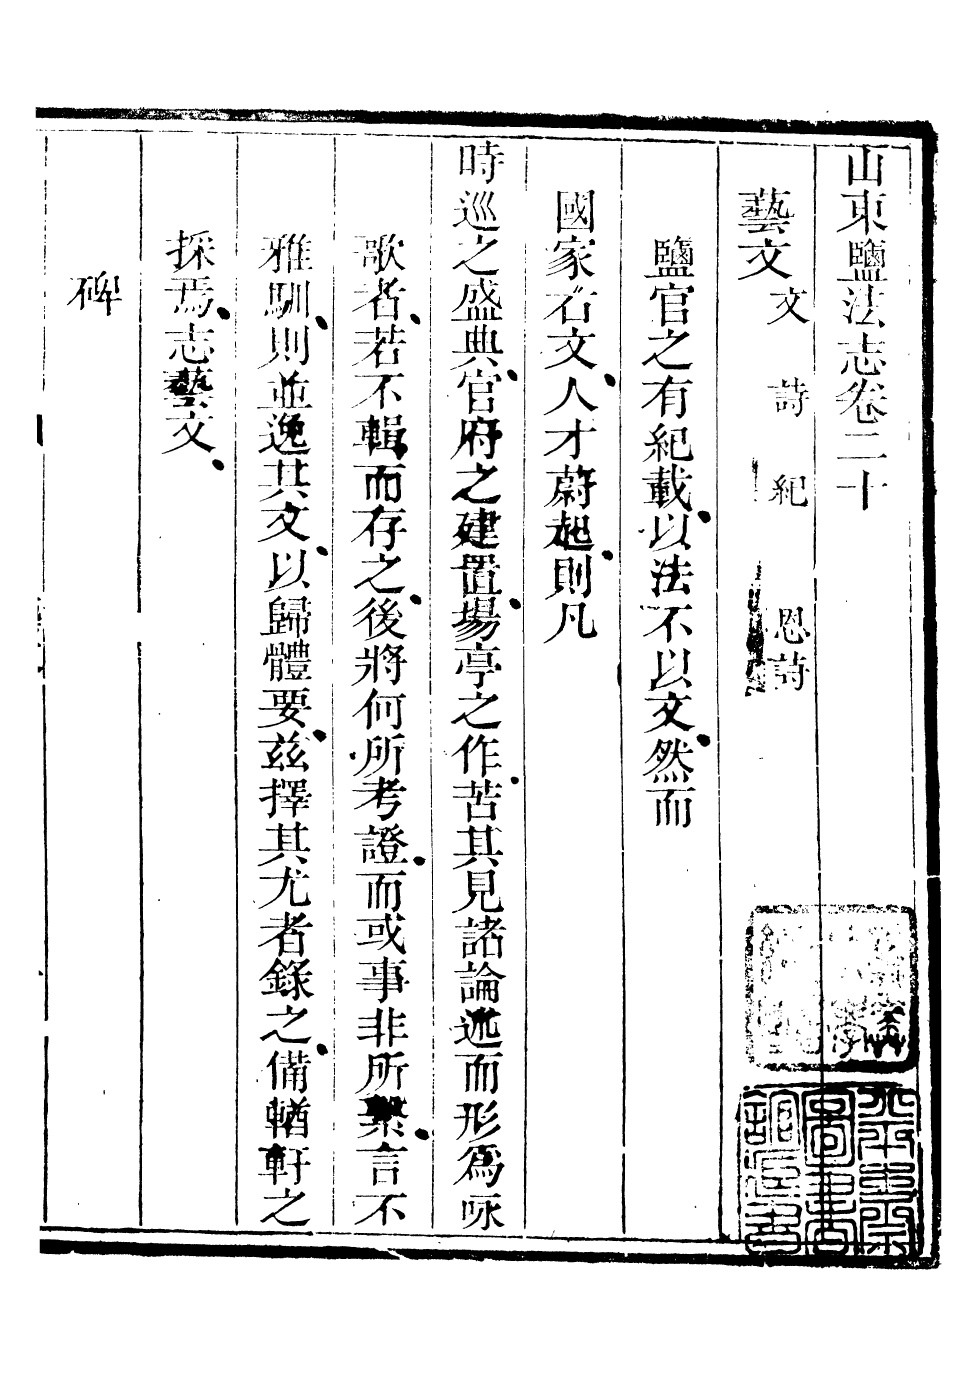 山東鹽法志卷二十
藝文 文 詩 紀 恩詩
鹽官之有紀載以法不以文然而
國家右文人才蔚起則凡
時巡之盛典官府之建置場亭之作苦其見諸論述而形爲詠
歌者若不輯而存之後將何所考證而或事非所繫言不
雅馴則並逸其文以歸體要茲擇其尤者錄之備輶軒之
採焉志藝文
碑